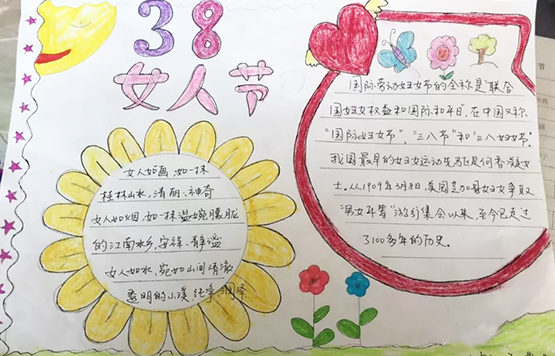 38
女人节
女人如画,如一抹
桂林山水,清丽、神奇
女人如烟,如一抹温婉朦胧
的江南水乡,安祥、静谧
女人如水,宛如山间清澈
透明的小溪 纯净 润泽
国际劳动妇女节的全称是联合
国妇女权益和国际和平日,在中国又称
"国际妇女节"、"三八节"和"三八妇女节"
我国最早的妇女运动先驱是何香凝女
士。从1909年3月8日,美国芝加哥妇女争取
"男女平等"游行集会以来,至今已走过
了100多年的历史。